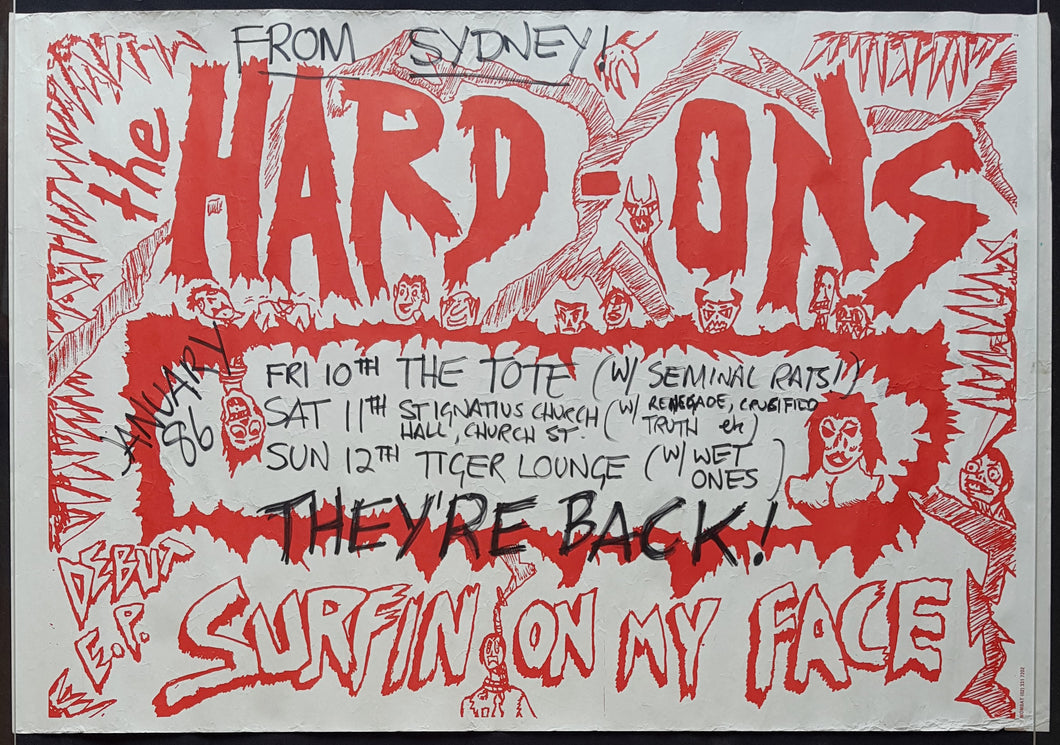 FROM SYDNEY!
the
HARD-ONS
JANUARY
86
FRI 10TH THE TOTE (W/ SEMINAL RATS!)
SAT 11TH ST IGNATIUS CHURCH HALL, CHURCH ST. (W/ RENEGADE, CRUSIFIED TRUTH etc)
SUN 12TH TIGER LOUNGE (W/ WET ONES)
THEY'RE BACK!
DEBUT
E.P.
SURFIN ON MY FACE